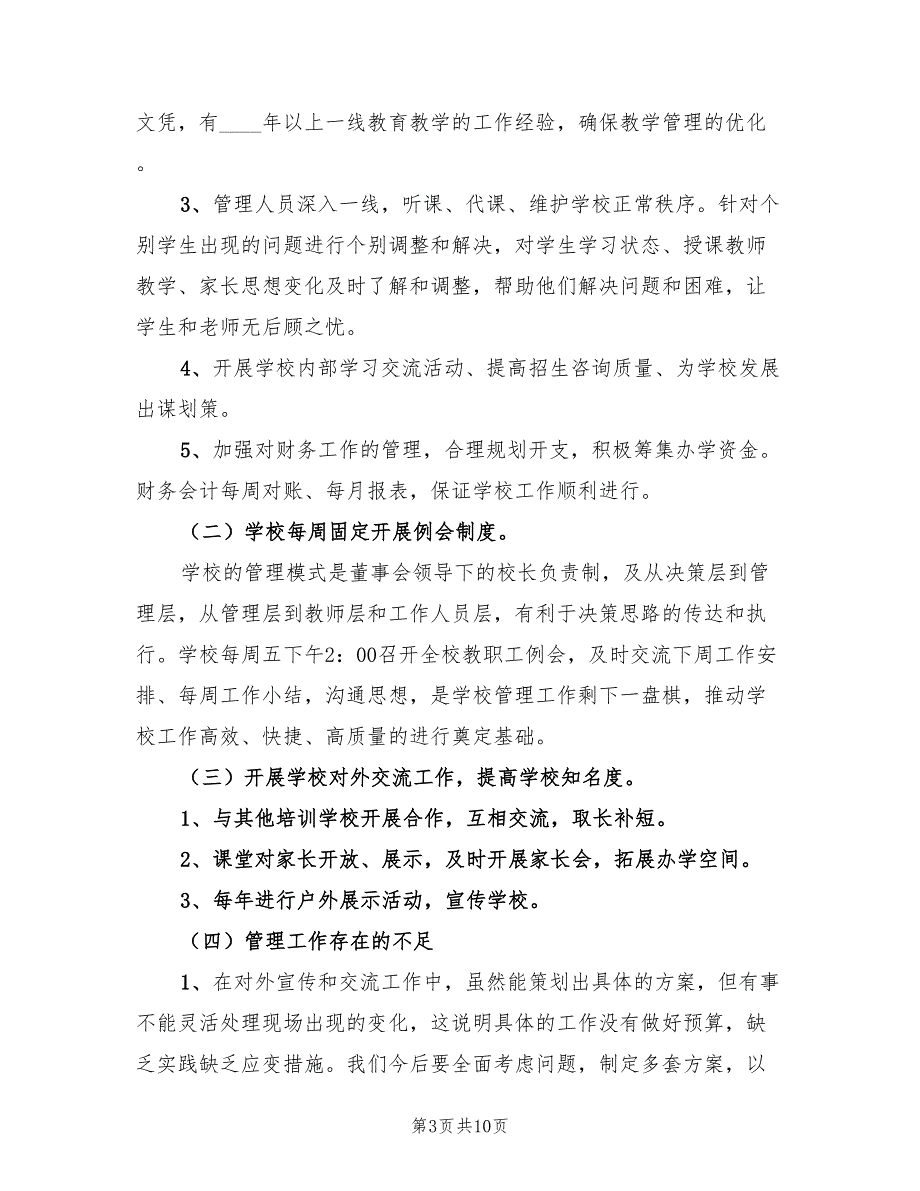 文凭，有____年以上一线教育教学的工作经验，确保教学管理的优化
。
3、管理人员深入一线，听课、代课、维护学校正常秩序。针对个
别学生出现的问题进行个别调整和解决，对学生学习状态、授课教师
教学、家长思想变化及时了解和调整，帮助他们解决问题和困难，让
学生和老师无后顾之忧。
4、开展学校内部学习交流活动、提高招生咨询质量、为学校发展
出谋划策。
5、加强对财务工作的管理，合理规划开支，积极筹集办学资金。
财务会计每周对账、每月报表，保证学校工作顺利进行。
（二）学校每周固定开展例会制度。
学校的管理模式是董事会领导下的校长负责制，及从决策层到管
理层，从管理层到教师层和工作人员层，有利于决策思路的传达和执
行。学校每周五下午2：00召开全校教职工例会，及时交流下周工作安
排、每周工作小结，沟通思想，是学校管理工作剩下一盘棋，推动学
校工作高效、快捷、高质量的进行奠定基础。
（三）开展学校对外交流工作，提高学校知名度。
1、与其他培训学校开展合作，互相交流，取长补短。
2、课堂对家长开放、展示，及时开展家长会，拓展办学空间。
3、每年进行户外展示活动，宣传学校。
（四）管理工作存在的不足
1、在对外宣传和交流工作中，虽然能策划出具体的方案，但有事
不能灵活处理现场出现的变化，这说明具体的工作没有做好预算，缺
乏实践缺乏应变措施。我们今后要全面考虑问题，制定多套方案，以
第3页共10页